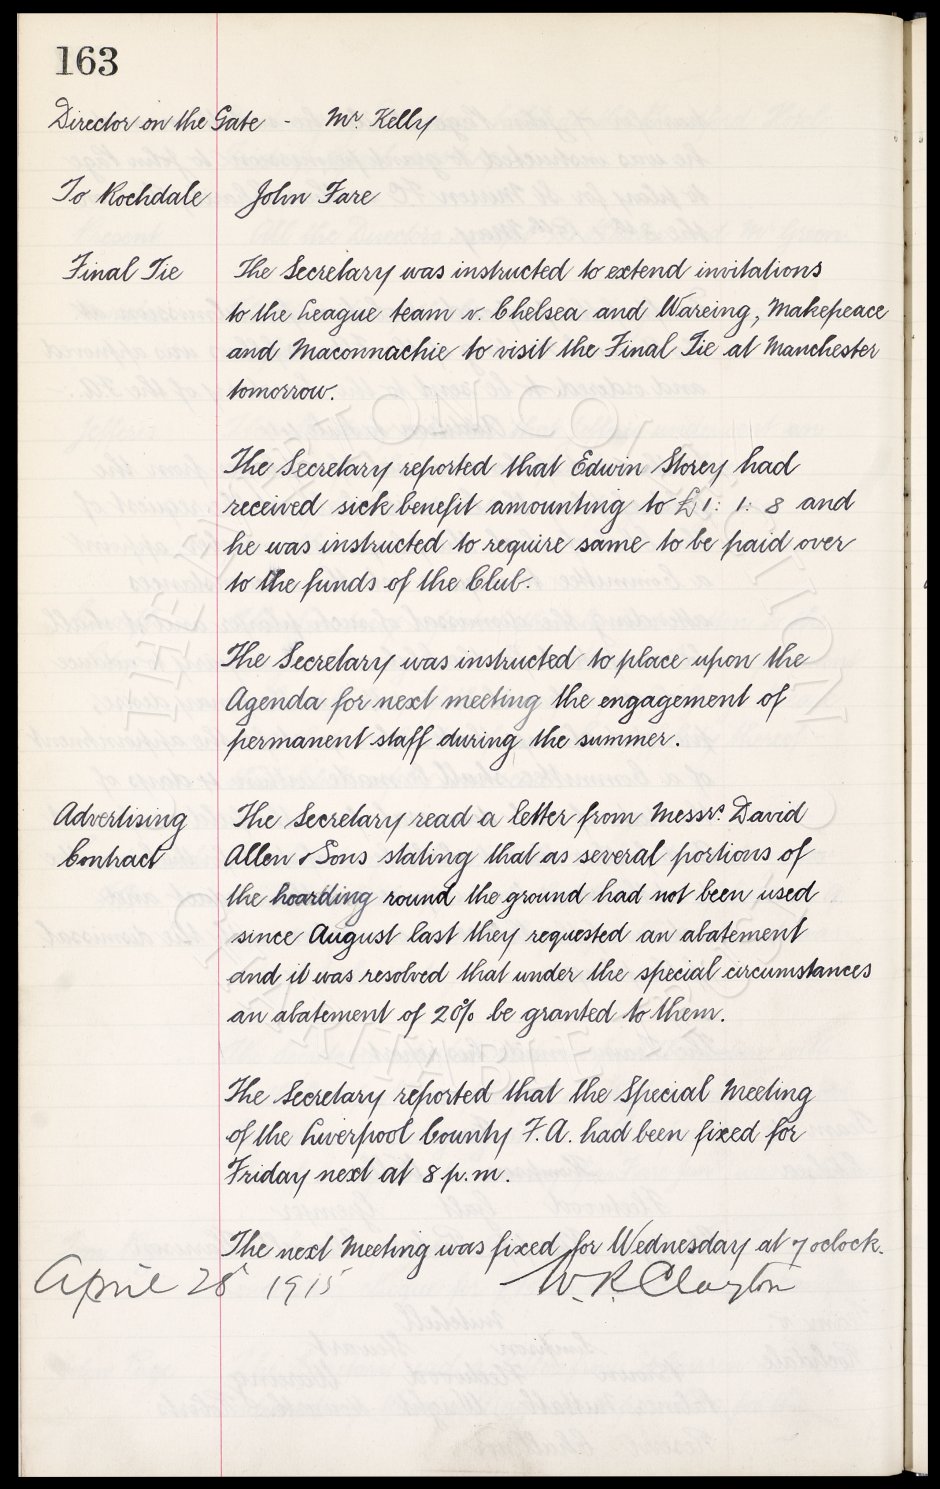 163
Director on the Gate - Mr. Kelly
To Rochdale John Fare
Final Tie The Secretary was instructed to extend invitations
to the League team v. Chelsea and Wareing, Makepeace
and Maconnachie to visit the Final Tie at Manchester
tomorrow.
The Secretary reported that Edwin Storey had
received sick benefit amounting to £1: 1: 8 and
he was instructed to require same to be paid over
to the funds of the Club.
The Secretary was instructed to place upon the
Agenda for next meeting the engagement of
permanent staff during the summer.
Advertising The Secretary read a letter from Messrs. David
Contract Allen & Sons stating that as several portions of
the hoarding round the ground had not been used
since August last they requested an abatement
and it was resolved that under the special circumstances
an abatement of 20% be granted to them.
The Secretary reported that the Special Meeting
of the Liverpool County F.A. had been fixed for
Friday next at 8 p.m.
The next Meeting was fixed for Wednesday at 7 oclock.
April 28 1915 W. R. Clayton